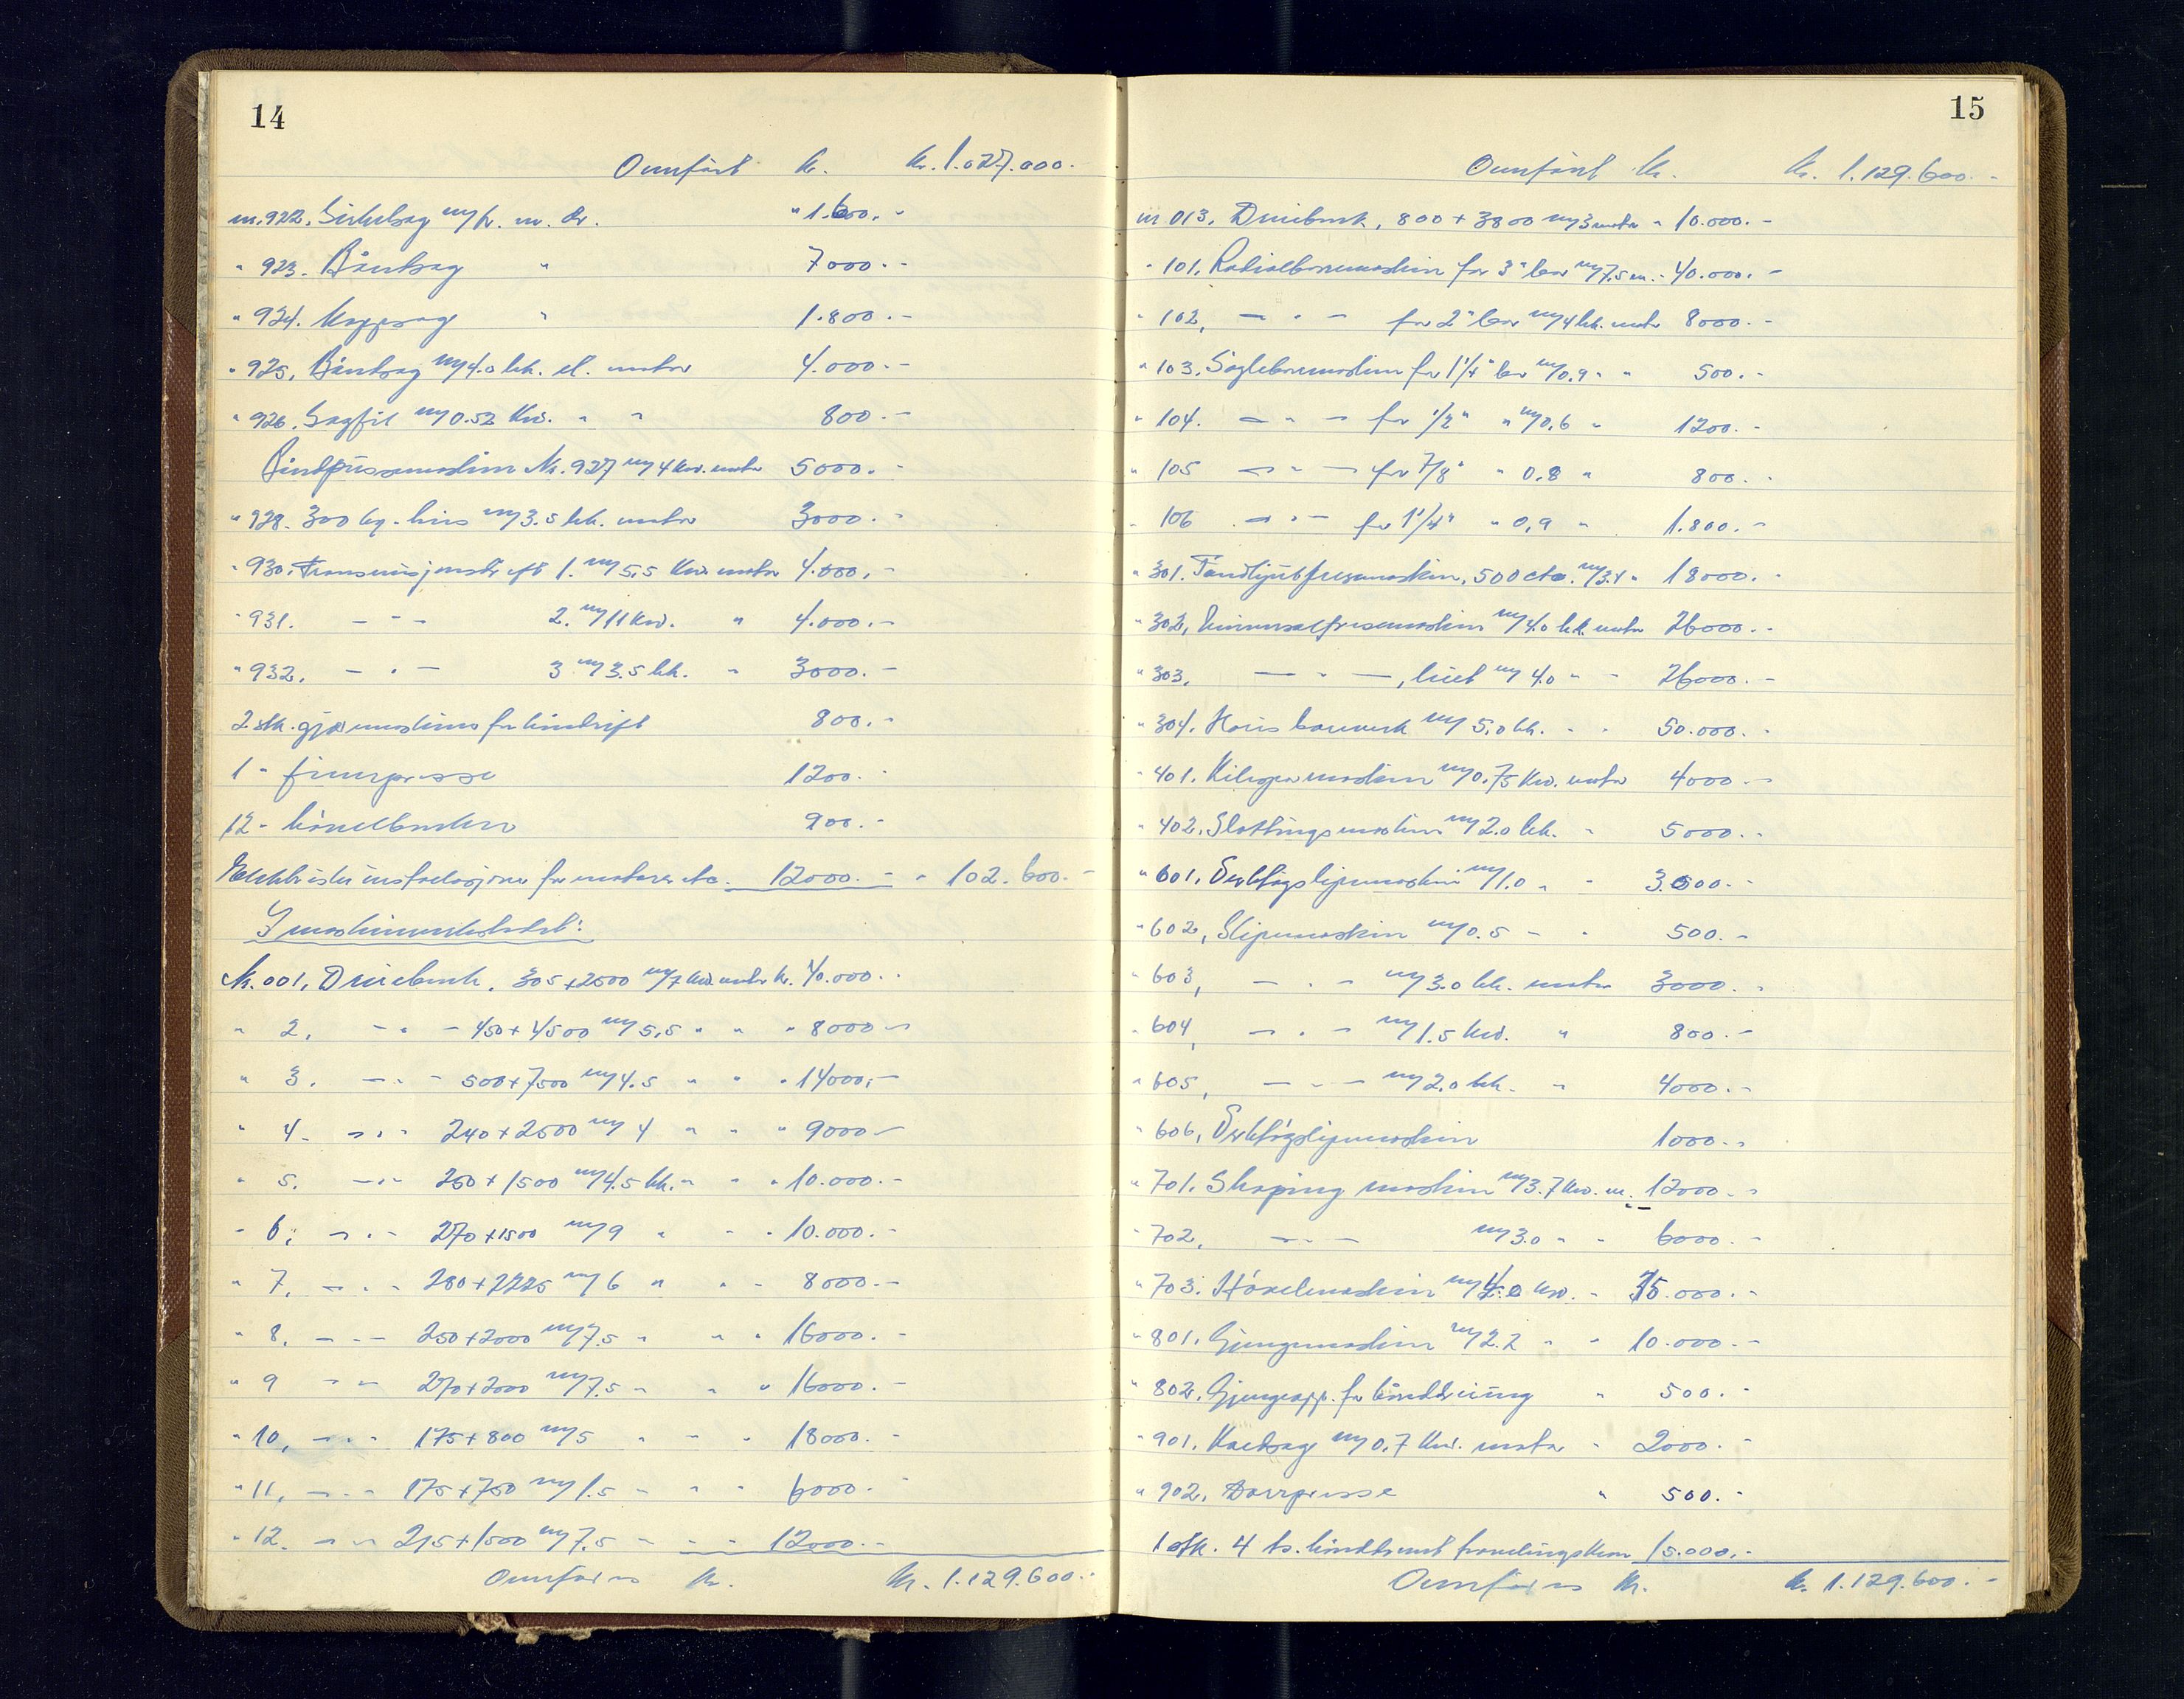 14
Overført Kr. Kr. 1.027.000.-
nr. 922. Sirkelsag m/ kr. m. dr. " 1.600.-
" 923. Båndsag " 7000.-
" 924. Kappsag " 1.800.-
" 925. Båndsag m/ 4.0 hk. el. motor 4.000.-
" 926. Sagfil m/ 0.52 Kw. " " 800.-
Båndpussemaskin Nr. 927 m/ 4 Kw. motor 5000.-
" 928. 300 kg. heis m/ 3.5 hk. motor 3000.-
" 930. Transmisjonsdrift 1. m/ 5,5 Kw. motor 4.000.-
" 931. - " - 2. m/ 11 Kw. " 4.000.-
" 932. - " - 3 m/ 3.5 hk. " 3000.-
2 stk. maskiner for hånddrift 800.-
1 " finerpresse 1200.-
12 - høvelbenker 900.-
Elektriske installasjoner for motorer etc. 12000.- " 102.600.-
I maskinverkstedet:
Nr. 001. Dreiebenk. 305 + 2500 m/ 7 Kw. motor kr. 40.000.-
" 2. - " - 450 + 4500 m/ 5,5 " " " 8000 -
" 3. - " - 500 + 7500 m/ 4.5 " " " 14000,-
" 4. - " - 240 + 2500 m/ 4 " " " 9000 -
" 5. - " - 260 + 1500 m/ 4.5 hk. " " " 10.000.-
" 6. - " - 270 + 1500 m/ 9 " " " 10.000.-
" 7. - " - 280 + 2225 m/ 6 " " " 8000.-
" 8. - " - 250 + 2000 m/ 7.5 " " " 16000.-
" 9 - " - 270 + 2000 m/ 7.5 " " " 16000.-
" 10. - " - 175 + 800 m/ 5 " " " 18000.-
" 11. - " - 175 + 750 m/ 1.5 " " " 6000.-
" 12. - " - 215 + 1500 m/ 7.5 " " " 12000.-
Overføres Kr. Kr. 1.129.600.-
15
Overført Kr. Kr. 1.129.600.-
nr 013. Dreiebenk, 800 + 3800 m/ 3 motor " 10.000.-
" 101. Radialboremaskin for 3" bor m/ 7.5 m. " 40.000.-
" 102, - " - for 2" bor m/ 4 hk. motor 8000.-
" 103. Søyleboremaskin for 1 1/4" bor m/ 0.9 " " 500.-
" 104. - " - for 1/2" " m/ 0,6 " 1200.-
" 105 - " - for 7/8" " 0.8 " 800.-
" 106 - " - for 1 1/4" " 0,9 " 1.800.-
" 301. Tannhjulsfresemaskin, 500 cta. m/ 3.4 " 18000.-
" 302. Universalfresemaskin m/ 4.0 hk. motor 26000.-
" 303. - " -, m/ 4.0 " " 26000.-
" 304. Horis. boreverk m/ 5,0 hk. " " 50.000.-
" 401. Kilespormaskin m/ 0.75 Kw. motor 4000.-
" 402. Slottingsmaskin m/ 2.0 hk. " 5000.-
" 601. Verktøyslipemaskin m/ 1.0 " " 3.000.-
" 602, Slipemaskin m/ 0.5 " " 500.-
" 603, - " - m/ 3.0 hk. motor 3000.-
" 604, - " - m/ 1.5 Kw. " 800.-
" 605, - " - m/ 2.0 hk. " 4000.-
" 606, Verktøyslipemaskin 1000.-
" 701. Shaping maskin m/ 3.7 Kw. m. 12000.-
" 702, - " - m/ 3.0 " " 6000.-
" 703. Høvelmaskin m/ 4.0 Kw. " 15.000.-
" 801. Gjengemaskin m/ 2.2 " " 10.000.-
" 802. Gjengeapp. for hånddreiing " 500.-
" 901. Kaldsag m/ 0.7 Kw. motor " 2000.-
" 902. Dorrpresse " 500.-
1 stk. 4 ts. travelingskran 15.000.-
Overføres Kr. Kr. 1.129.600.-